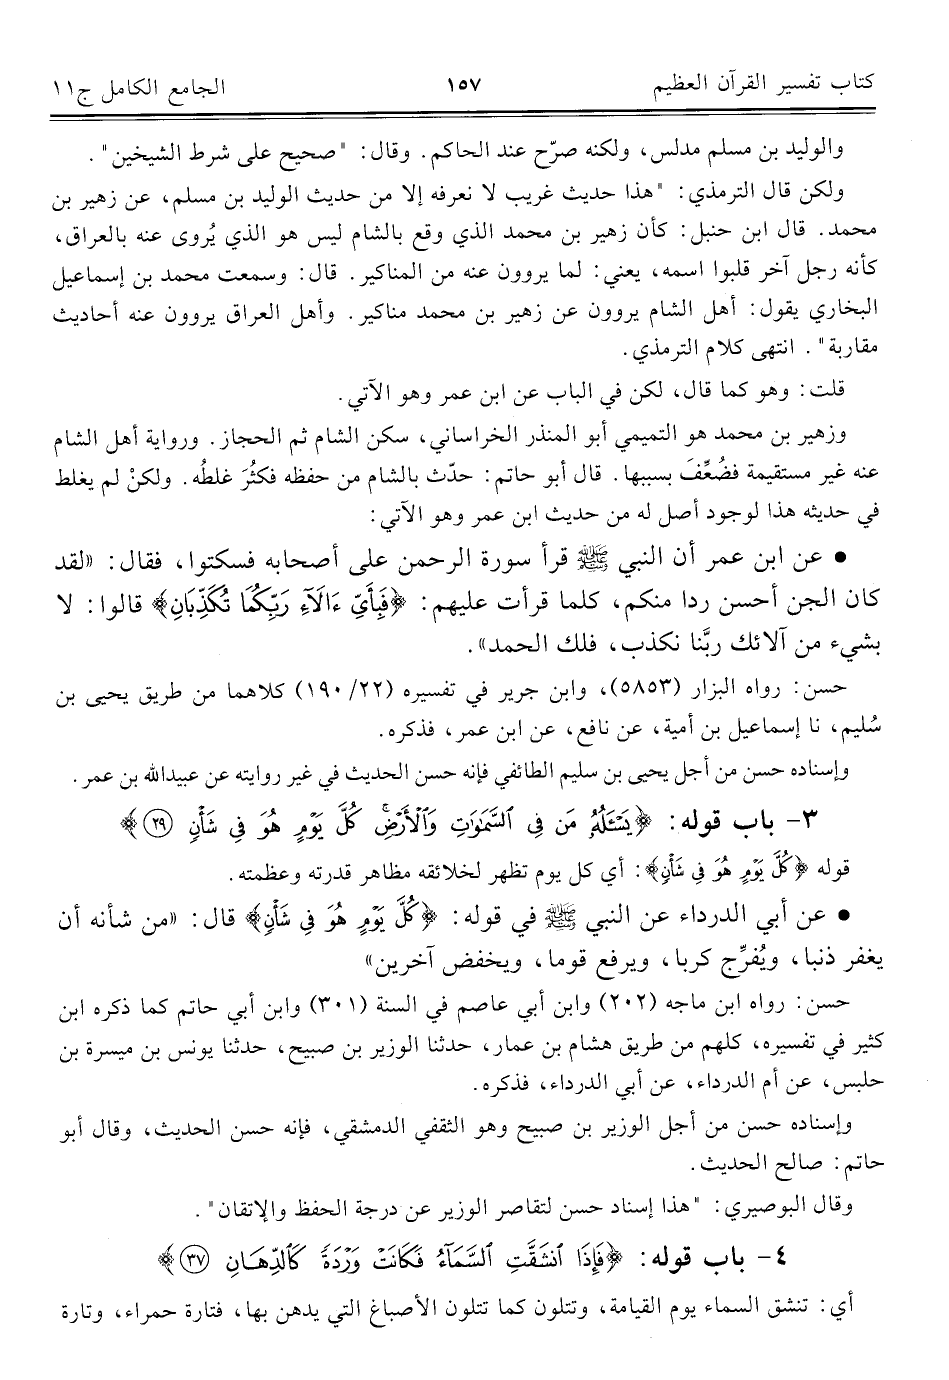 كتاب تفسير القرآن العظيم ١٥٧ الجامع الكامل ج١١
والوليد بن مسلم مدلس، ولكنه صرّح عند الحاكم. وقال: "صحيح على شرط الشيخين".
ولكن قال الترمذي: "هذا حديث غريب لا نعرفه إلا من حديث الوليد بن مسلم، عن زهير بن
محمد. قال ابن حنبل: كأن زهير بن محمد الذي وقع بالشام ليس هو الذي يُروى عنه بالعراق،
كأنه رجل آخر قلبوا اسمه، يعني: لما يروون عنه من المناكير. قال: وسمعت محمد بن إسماعيل
البخاري يقول: أهل الشام يروون عن زهير بن محمد مناكير. وأهل العراق يروون عنه أحاديث
مقاربة". انتهى كلام الترمذي.
قلت: وهو كما قال، لكن في الباب عن ابن عمر وهو الآتي.
وزهير بن محمد هو التميمي أبو المنذر الخراساني، سكن الشام ثم الحجاز. ورواية أهل الشام
عنه غير مستقيمة فضُعِّفَ بسببها. قال أبو حاتم: حدّث بالشام من حفظه فكثُرَ غلطُه. ولكنْ لم يغلط
في حديثه هذا لوجود أصل له من حديث ابن عمر وهو الآتي:
• عن ابن عمر أن النبي ﷺ قرأ سورة الرحمن على أصحابه فسكتوا، فقال: «لقد
كان الجن أحسن ردا منكم، كلما قرأت عليهم: ﴿فَبِأَيِّ ءَالَآءِ رَبِّكُمَا تُكَذِّبَانِ﴾ قالوا: لا
بشيء من آلائك ربَّنا نكذب، فلك الحمد».
حسن: رواه البزار (٥٨٥٣)، وابن جرير في تفسيره (٢٢/ ١٩٠) كلاهما من طريق يحيى بن
سُليم، نا إسماعيل بن أمية، عن نافع، عن ابن عمر، فذكره.
وإسناده حسن من أجل يحيى بن سليم الطائفي فإنه حسن الحديث في غير روايته عن عبيدالله بن عمر.
٣- باب قوله: ﴿يَسْـَٔلُهُۥ مَن فِى ٱلسَّمَـٰوَٰتِ وَٱلْأَرْضِ ۚ كُلَّ يَوْمٍ هُوَ فِى شَأْنٍ ٢٩﴾
قوله ﴿كُلَّ يَوْمٍ هُوَ فِى شَأْنٍ﴾: أي كل يوم تظهر لخلائقه مظاهر قدرته وعظمته.
• عن أبي الدرداء عن النبي ﷺ في قوله: ﴿كُلَّ يَوْمٍ هُوَ فِى شَأْنٍ﴾ قال: «من شأنه أن
يغفر ذنبا، ويُفرِّج كربا، ويرفع قوما، ويخفض آخرين»
حسن: رواه ابن ماجه (٢٠٢) وابن أبي عاصم في السنة (٣٠١) وابن أبي حاتم كما ذكره ابن
كثير في تفسيره، كلهم من طريق هشام بن عمار، حدثنا الوزير بن صبيح، حدثنا يونس بن ميسرة بن
حلبس، عن أم الدرداء، عن أبي الدرداء، فذكره.
وإسناده حسن من أجل الوزير بن صبيح وهو الثقفي الدمشقي، فإنه حسن الحديث، وقال أبو
حاتم: صالح الحديث.
وقال البوصيري: "هذا إسناد حسن لتقاصر الوزير عن درجة الحفظ والإتقان".
٤- باب قوله: ﴿فَإِذَا ٱنشَقَّتِ ٱلسَّمَآءُ فَكَانَتْ وَرْدَةً كَٱلدِّهَانِ ٣٧﴾
أي: تنشق السماء يوم القيامة، وتتلون كما تتلون الأصباغ التي يدهن بها، فتارة حمراء، وتارة